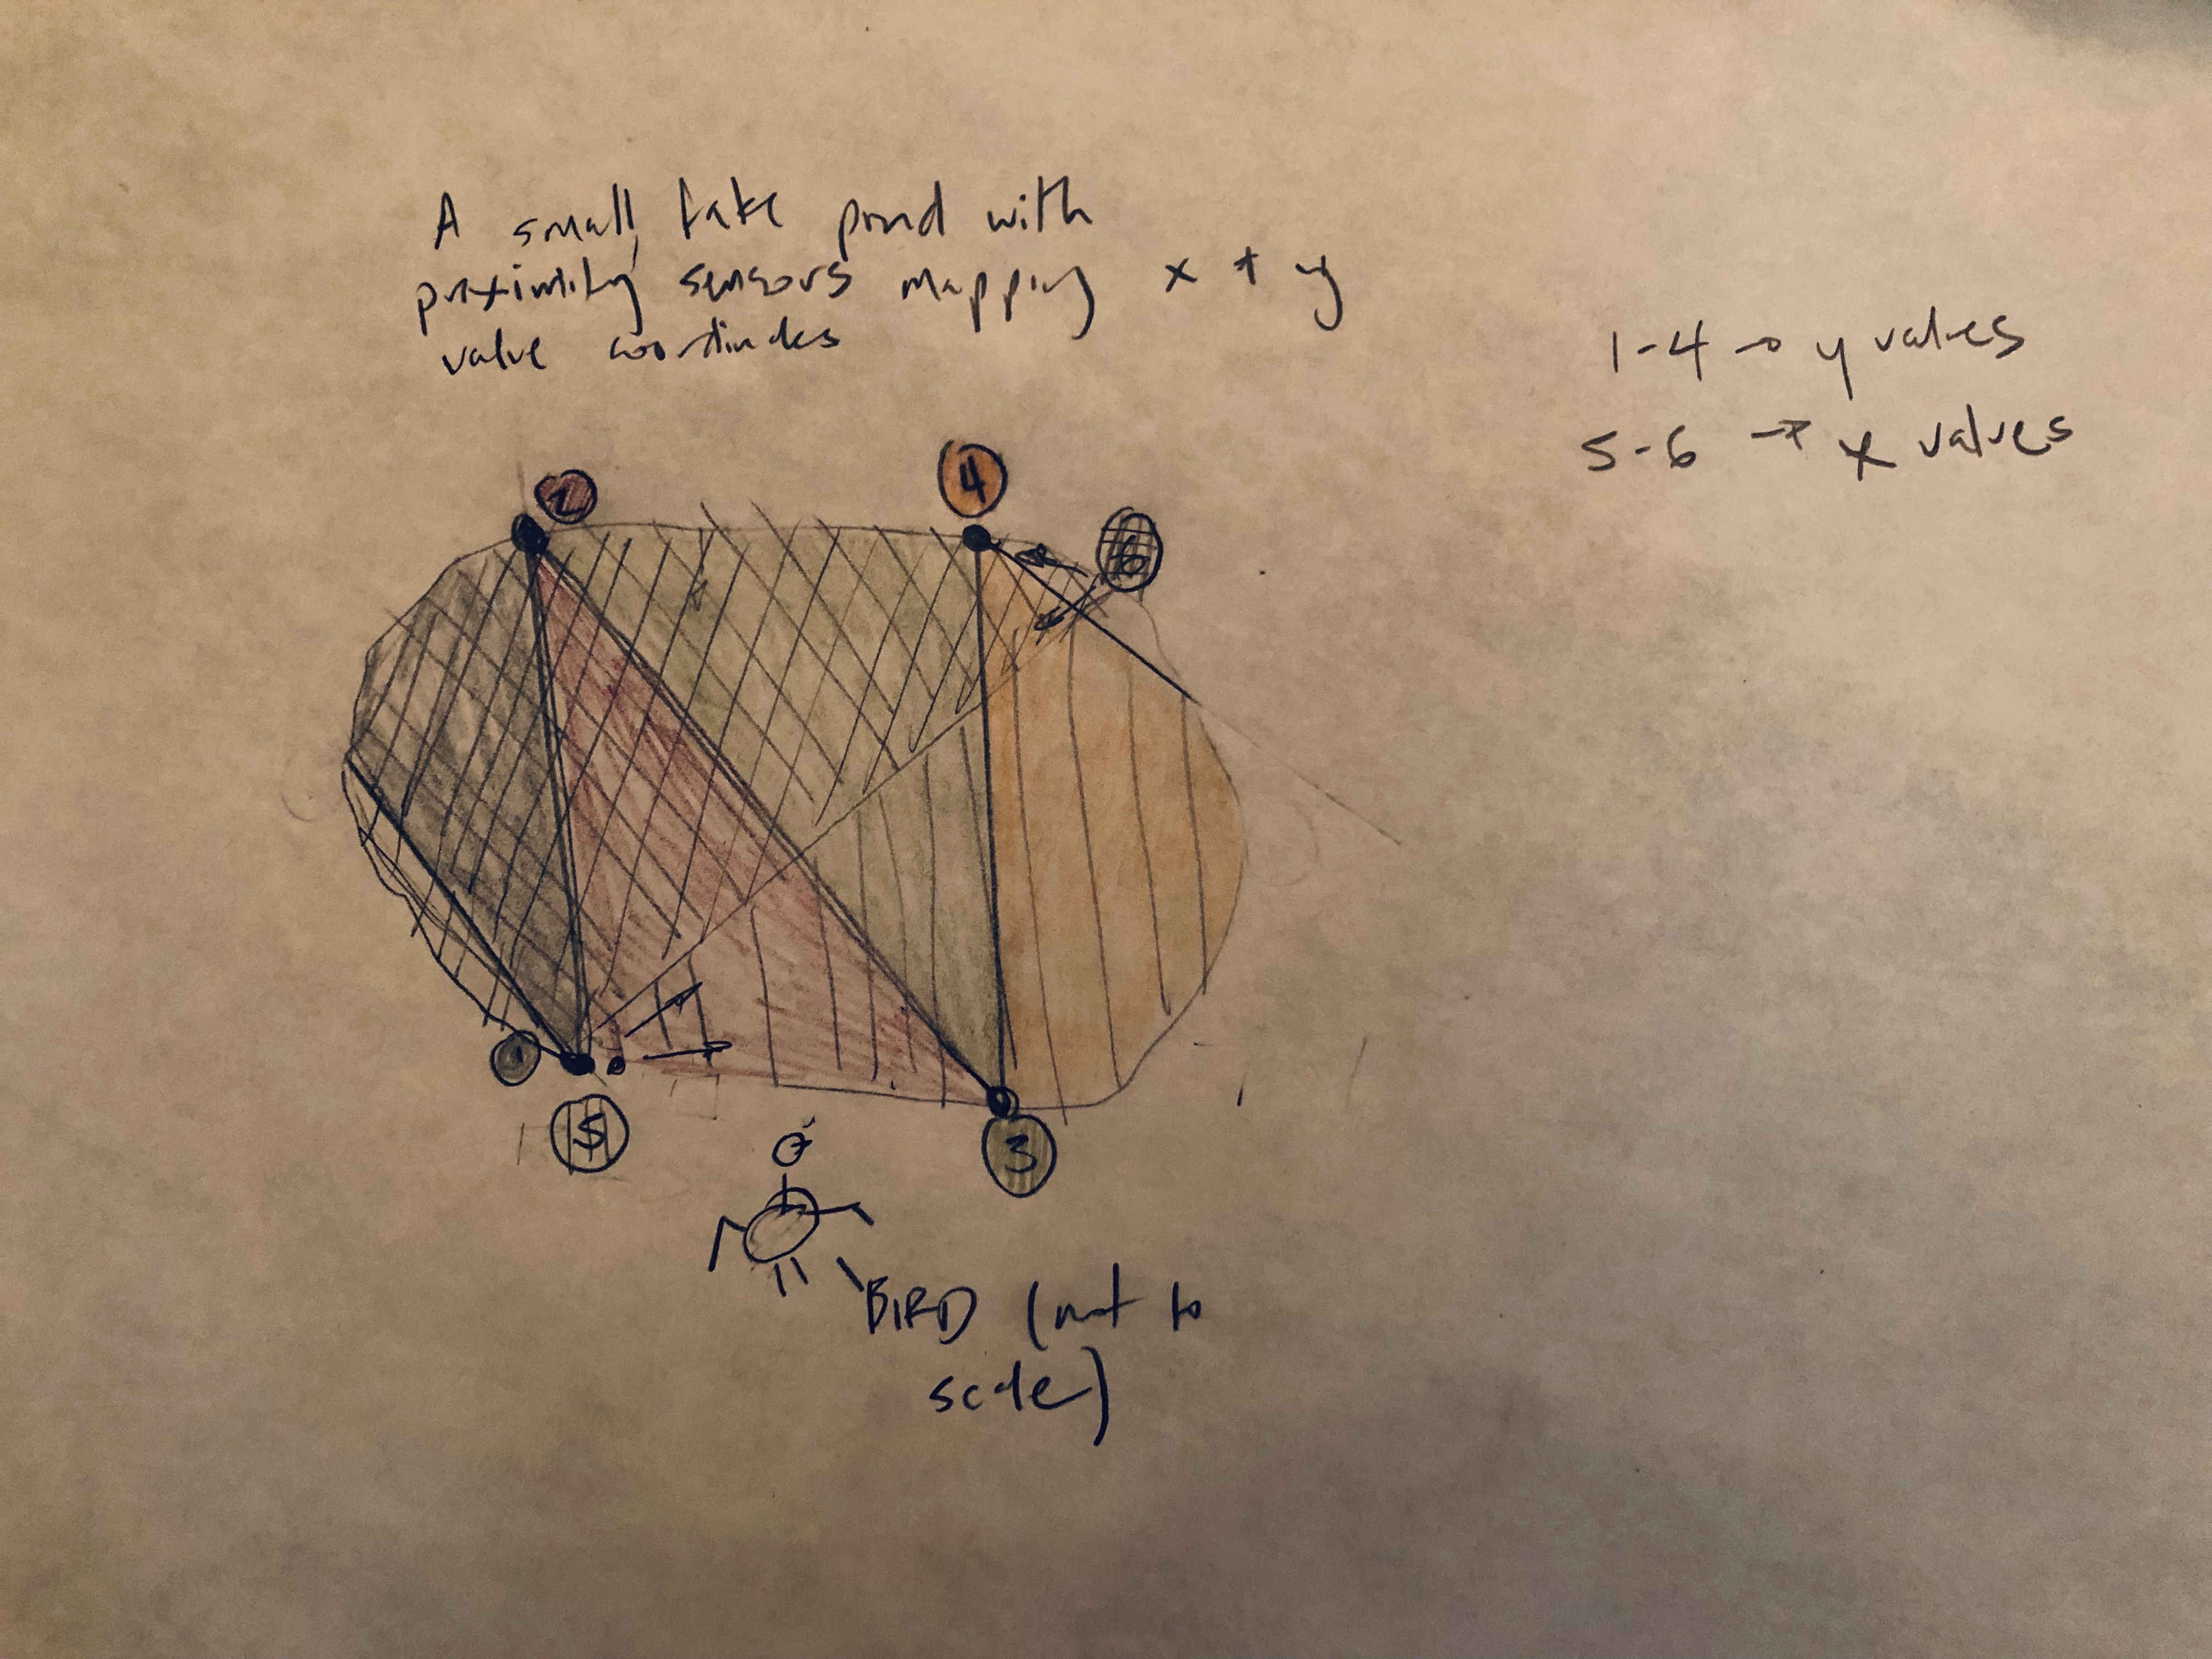 A small, fake pond with
proximity sensors mapping x + y
value coordinates
1-4 → y values
5-6 → x values
2
4
6
1
5
3
BIRD (not to
scale)